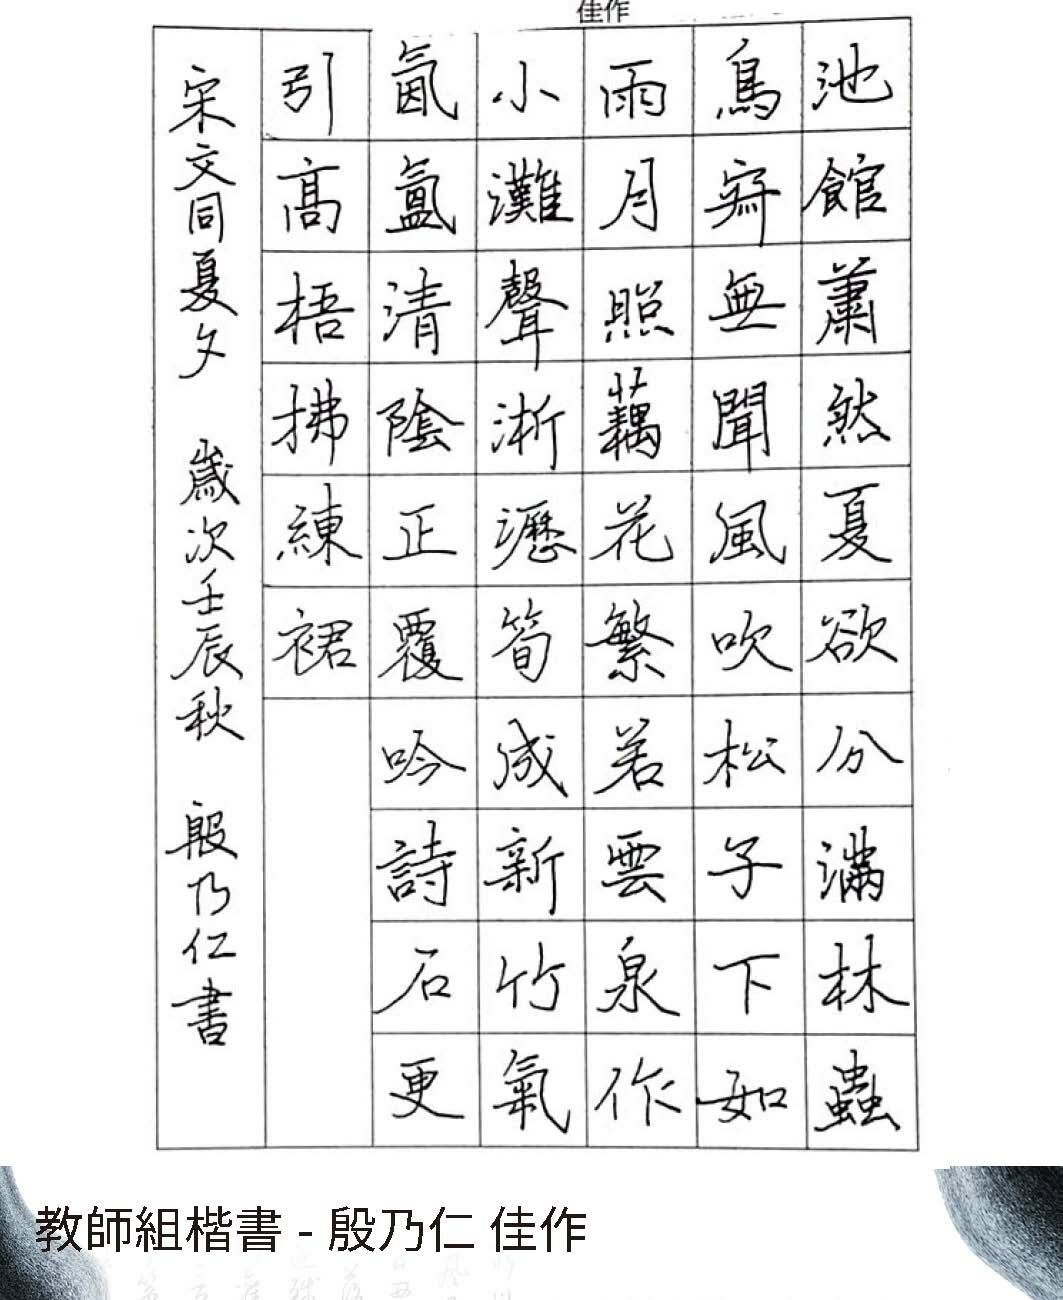 佳作
池館蕭然夏欲分滿林蟲
鳥寂無聞風吹松子下如
雨月照藕花繁若雲泉作
小灘聲淅瀝筍成新竹氣
氤氳清陰正覆吟詩石更
引高梧拂練裙
宋文同夏夕 歲次壬辰秋 殷乃仁書
教師組楷書 - 殷乃仁 佳作